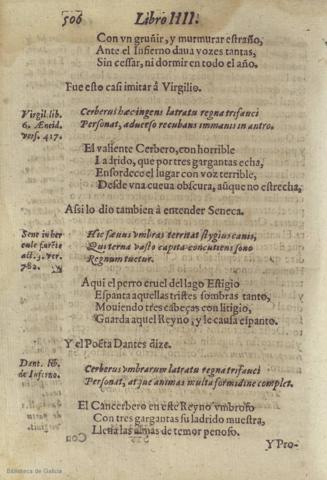 506 Libro IIII.
Con vn gruñir, y murmurar estraño,
Ante el Infierno daua vozes tantas,
Sin cessar, ni dormir en todo el año.
Fue esto casi imitar à Virgilio.
Virgil. lib.
6. Æneid.
vers. 417.
Cerberus hæc ingens latratu regna trifauci
Personat, aduerso recubans immanis in antro.
El valiente Cerbero, con horrible
Ladrido, que por tres gargantas echa,
Ensordece el lugar con voz terrible,
Desde vna cueua obscura, aũque no estrecha,
Assi lo dio tambien à entender Seneca.
Sene in her
cule furẽte
act. 3. ver.
782.
Hic sæuus vmbras territat stygius canis,
Qui terna vasto capita concutiens sono
Regnum tuetur.
Aqui el perro cruel del lago Estigio
Espanta aquellas tristes sombras tanto,
Mouiendo tres cabeças con litigio,
Guarda aquel Reyno, y le causa espanto.
Y el Poëta Dantes dize.
Dant. lib.
de Inferno.
Cerberus vmbrarum latratu regna trifauci
Personat, atque animas multa formidine complet.
El Cancerbero en este Reyno vmbroso
Con tres gargantas su ladrido muestra,
Llena las almas de temor penoso.
Y Pro-
Biblioteca de Galicia